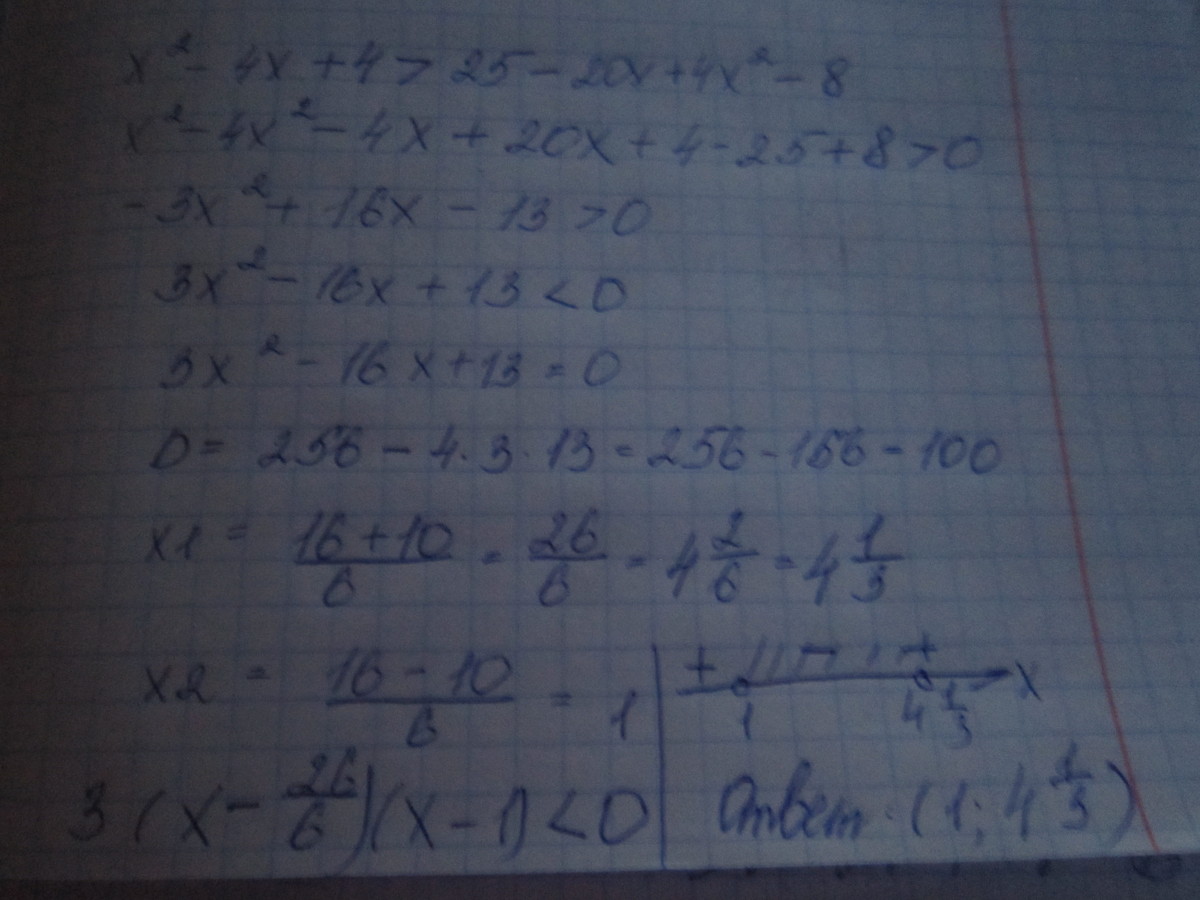 x² - 4x + 4 > 25 - 20x + 4x² - 8
x² - 4x² - 4x + 20x + 4 - 25 + 8 > 0
-3x² + 16x - 13 > 0
3x² - 16x + 13 < 0
3x² - 16x + 13 = 0
D = 256 - 4·3·13 = 256 - 156 = 100
x1 = \frac{16+10}{6} = \frac{26}{6} = 4\frac{2}{6} = 4\frac{1}{3}
x2 = \frac{16-10}{6} = 1
+ - + x
1 4\frac{1}{3}
3(x - \frac{26}{6})(x - 1) < 0
Ответ: (1; 4\frac{1}{3})